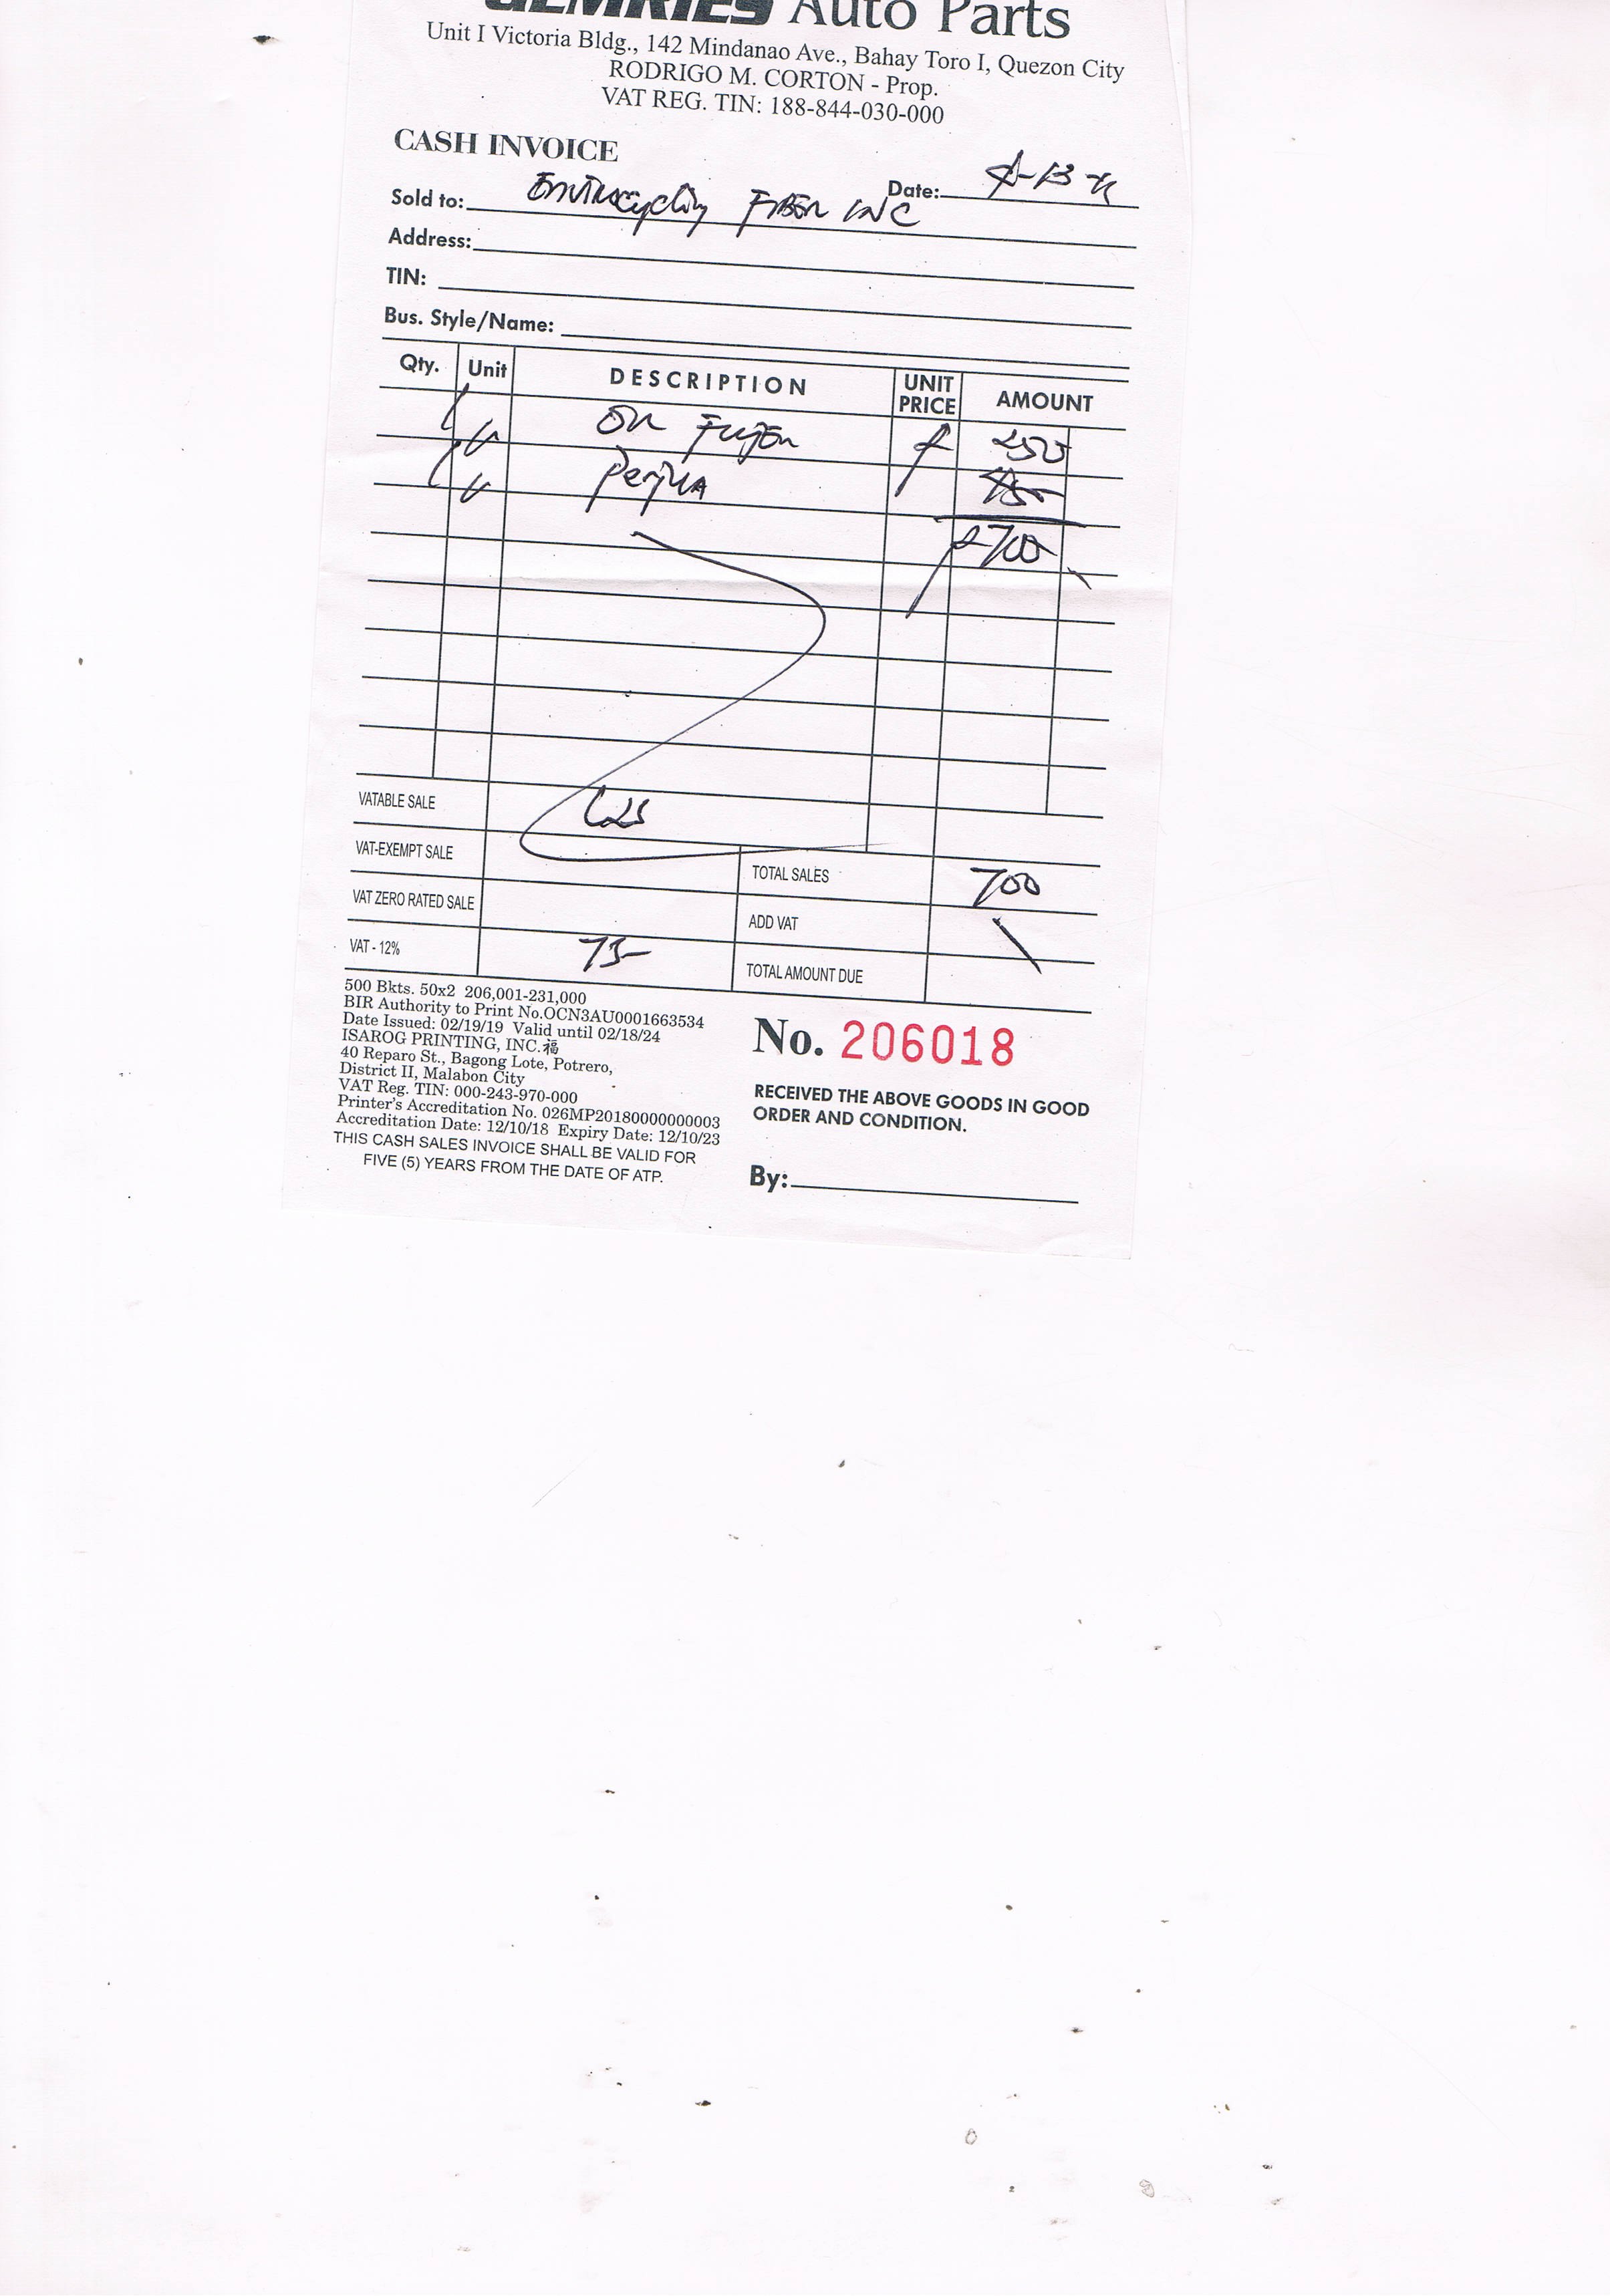 GEMRIES Auto Parts
Unit I Victoria Bldg., 142 Mindanao Ave., Bahay Toro I, Quezon City
RODRIGO M. CORTON - Prop.
VAT REG. TIN: 188-844-030-000
CASH INVOICE
Date:
Sold to: Envirocycling Fiber INC
Address:
TIN:
Bus. Style/Name:
Qty. Unit DESCRIPTION UNIT PRICE AMOUNT
450
₱700
VATABLE SALE 625
VAT-EXEMPT SALE
TOTAL SALES 700
VAT ZERO RATED SALE
ADD VAT
VAT - 12% 75-
TOTAL AMOUNT DUE
500 Bkts. 50x2 206,001-231,000
BIR Authority to Print No.OCN3AU0001663534
Date Issued: 02/19/19 Valid until 02/18/24
ISAROG PRINTING, INC.福
40 Reparo St., Bagong Lote, Potrero,
District II, Malabon City
VAT Reg. TIN: 000-243-970-000
Printer's Accreditation No. 026MP20180000000003
Accreditation Date: 12/10/18 Expiry Date: 12/10/23
THIS CASH SALES INVOICE SHALL BE VALID FOR
FIVE (5) YEARS FROM THE DATE OF ATP.
No. 206018
RECEIVED THE ABOVE GOODS IN GOOD
ORDER AND CONDITION.
By: